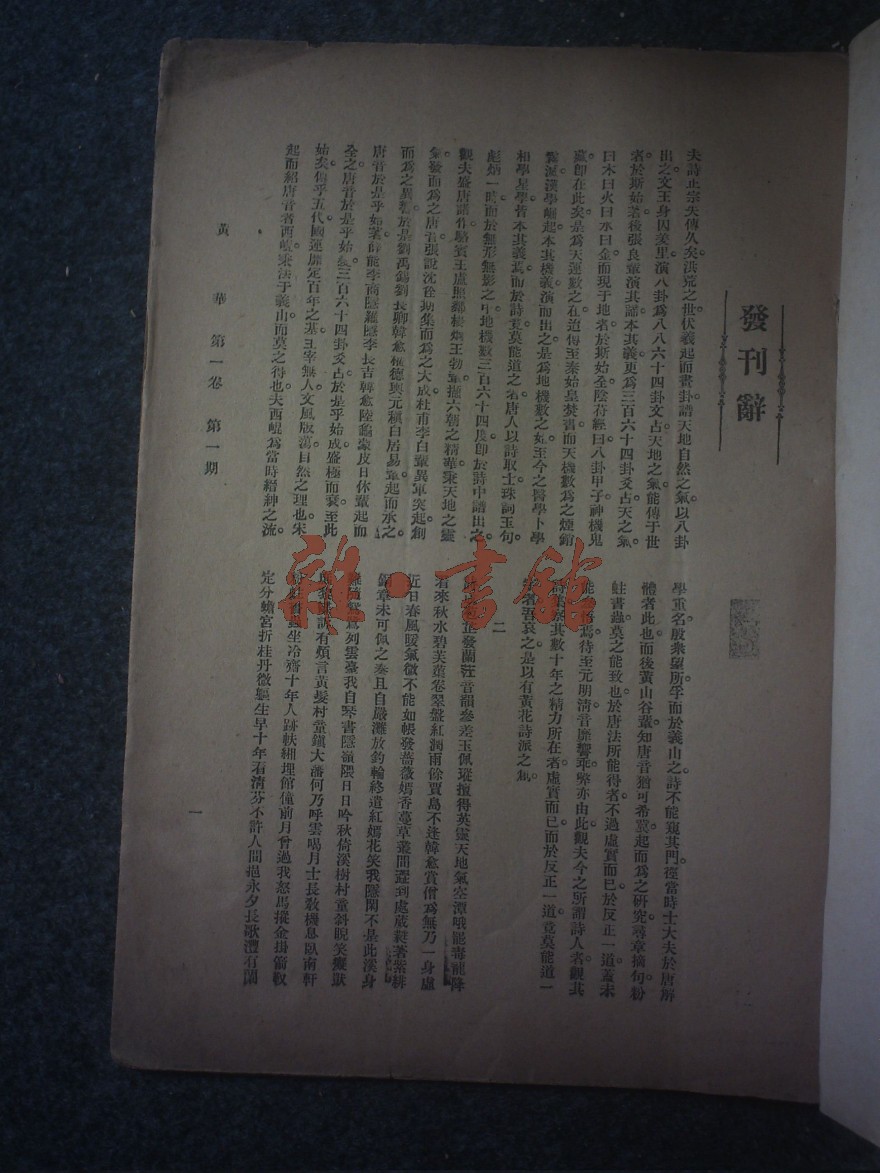 發刊辭
夫詩止宗失傳久矣。洪荒之世伏羲起而畫卦。譜天地自然之氣以八卦
出之。文王身囚羑里演八卦爲八八六十四卦文占天地之氣。能傳于世
者。於斯始著。後張良輩演其歸本其義。更爲三百六十四卦爻占天之氣。
曰木曰火曰水曰金。而現于地名。於斯始全。陰符經曰八卦甲子神機鬼
藏。即在此矣。是爲天運數之在。迨傳至秦始皇焚書而天機數爲之煙銷
漢學崛起。本其機義。演而出之。是爲地機數之始。至今之醫學卜學
相學星學皆本其義焉。而於詩莫能道之者。唐人以詩取士。珠詞玉句。
彪炳一時。而於無形無影之中。地機數三百六十四度。即於詩中譜出之。
觀夫盛唐諸作。駱賓王盧照鄰楊烱王勃輩擷六朝之精華。秉天地之靈
氣。發而爲之唐音。張說沈佺期集而爲之大成。杜甫李白輩異軍突起。創
而爲之異響。於是劉禹錫劉長卿韓愈權德輿元稹白居易輩起而承之。
唐音於是乎始著。薛能李商隱羅隱李長吉韓愈陸龜蒙皮日休輩起而
全之。唐音於是乎始。三百六十四卦爻占於是乎始成。盛極而衰。至此
始矣。傷乎五代國運靡定。百年之基。主宰無人。文風版蕩。自然之理也。宋
起而紹唐音者。西崐秉法于義山而莫之得也。夫西崐爲當時縉紳之流。
學重名殷衆望所孚。而於義山之詩。不能窺其門徑。當時士大夫於唐解
體者此也。而後黃山谷輩知唐音猶可希冀。起而爲之研究。尋章摘句。粉
蛀書蟲。莫之能致也。於唐法所能得者。不過虛實而已。於反正一道。蓋未
能焉。待至元朋清音靡響。乖弊亦由此。觀夫今之所謂詩人者。觀其
其數十年之精力。所在者虛實而已。而於反正一道。竟莫能道一
吾哀之。是以有黃花詩派之集。
二
正發蘭汪音韻參差玉佩瑽擅得英靈天地氣空潭哦罷毒龍降
看來秋水碧芙蕖卷翠盤紅潤雨餘賈島不逢韓愈賞借爲無乃一身虛
近日春風暖氣微不能如帳發薔薇嫣香蔓草叢間聲到處葳蕤著紫緋
銀章未可佩之秦且自嚴灘放釣輪終遣紅嫣花笑我隱閑不是此溪身
列雲臺我自琴書隱嶺隈日日吟秋倚溪樹村童斜睨笑癡獃
有煩言黃髮村童鎭大藩何乃呼雲喝月士長敎機息臥南軒
坐冷齋十年人跡軼細埋館僮前月曾過我怒馬摐金掛箭靫
定分蟾宮折桂丹微軀生早十年看清芬不許人間挹永夕長歌澧有蘭
黃華 第一卷 第一期
一
雜·書館